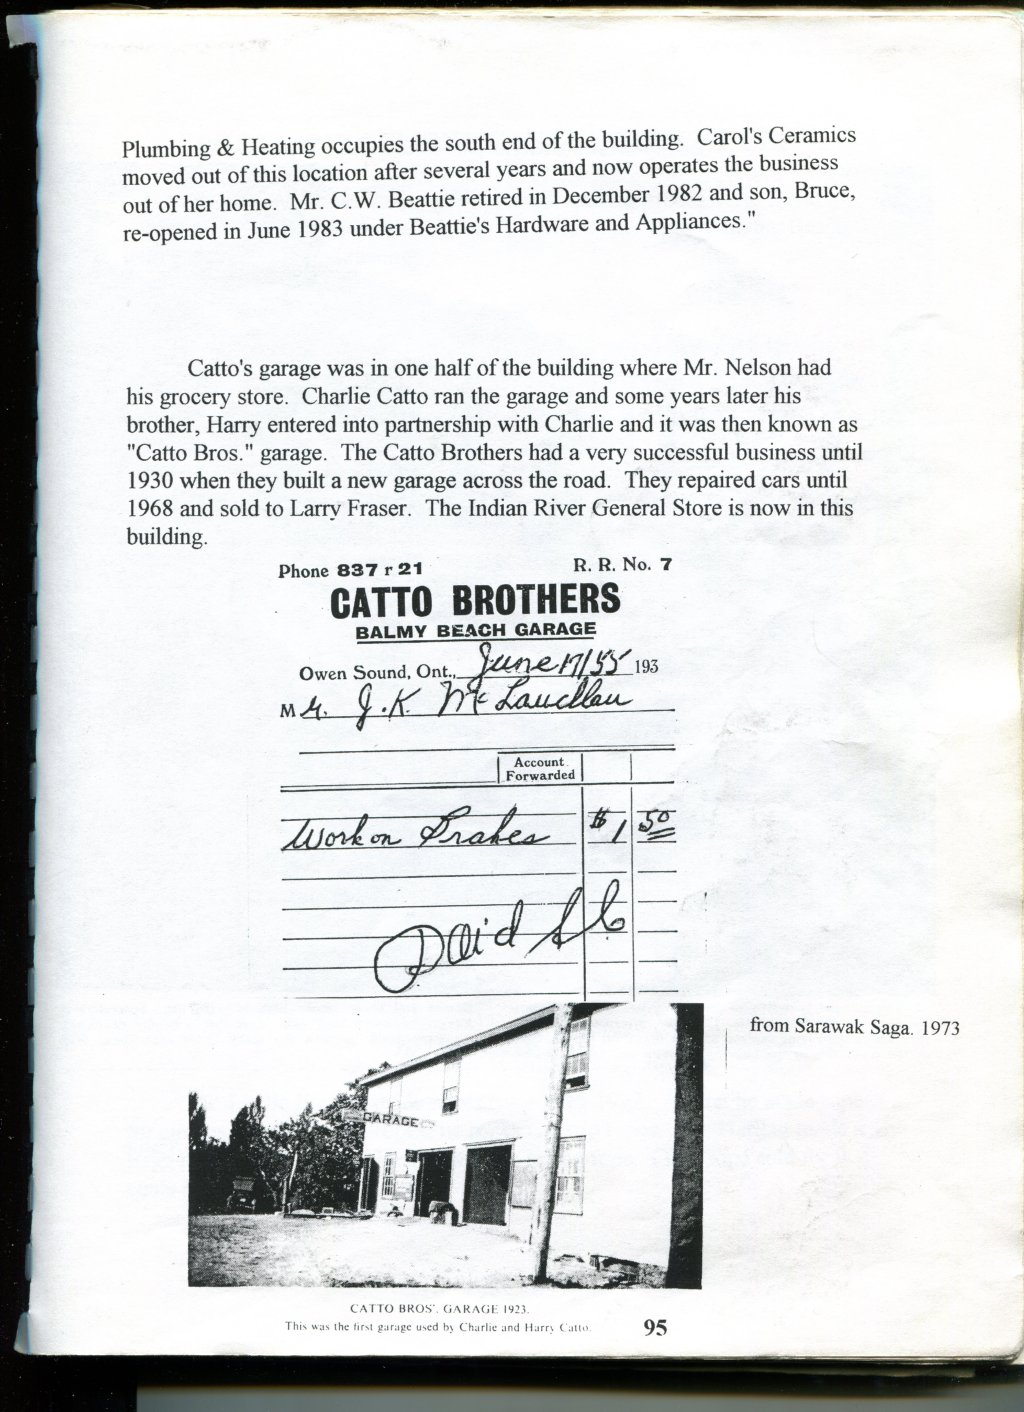 Plumbing & Heating occupies the south end of the building. Carol's Ceramics
moved out of this location after several years and now operates the business
out of her home. Mr. C.W. Beattie retired in December 1982 and son, Bruce,
re-opened in June 1983 under Beattie's Hardware and Appliances."
Catto's garage was in one half of the building where Mr. Nelson had
his grocery store. Charlie Catto ran the garage and some years later his
brother, Harry entered into partnership with Charlie and it was then known as
"Catto Bros." garage. The Catto Brothers had a very successful business until
1930 when they built a new garage across the road. They repaired cars until
1968 and sold to Larry Fraser. The Indian River General Store is now in this
building.
Phone 837 r 21 R. R. No. 7
CATTO BROTHERS
BALMY BEACH GARAGE
Owen Sound, Ont., June 17/55 193
Mr. J.K. McLauchlan
Account
Forwarded
Work on Brakes $1 50
Paid
from Sarawak Saga. 1973
GARAGE
CATTO BROS'. GARAGE 1923.
This was the first garage used by Charlie and Harry Catto.
95